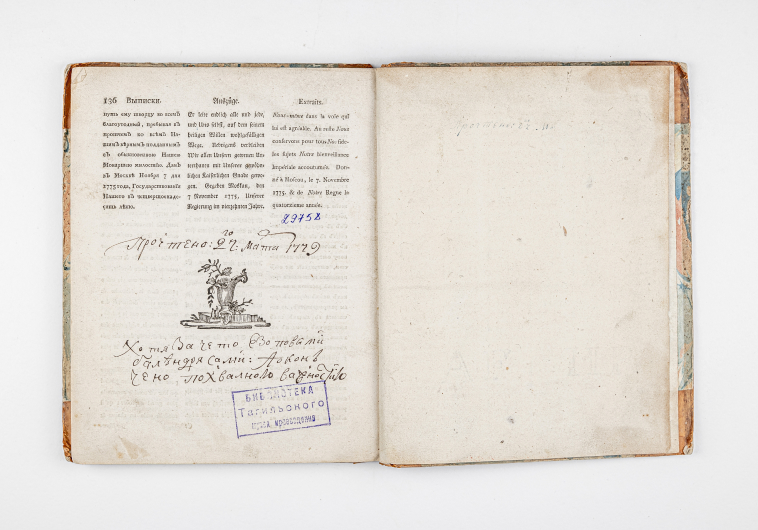 136 Выписки.
Auszüge.
Extraits.
путь ему творду во всемъ
благоугодный, пребывая въ
прочемъ ко всѣмъ На-
шимъ вѣрнымъ подданнымъ
съ обыкновенною Нашею
Монаршею милостію. Данъ
въ Москвѣ Ноября 7 дня
1775 года, Государствованія
Нашего въ четвертоенаде-
сять лѣто.
Er leite endlich alle und jede,
und uns selbst, auf dem seinem
heiligen Willen wohlgefälligen
Wege. Uebrigens verbleiben
Wir allen Unseren getreuen Un-
terthanen mit Unserer gewöhn-
lichen Kaiserlichen Gnade gewo-
gen. Gegeben Moskau, den
7 November 1775, Unserer
Regierung im vierzehnten Jahre.
Nous-même dans la voie qui
lui est agréable. Au reste Nous
conservons pour tous Nos fide-
les sujets Notre bienveillance
Impériale accoutumée. Don-
né à Moscou, le 7. Novembre
1775. & de Notre Regne le
quatorzieme année.
29758
Прочтено: 27. го Марта 1779
Хотя За что
сами:
чено похвалною
БИБЛИОТЕКА
Тагильского
музея краеведения